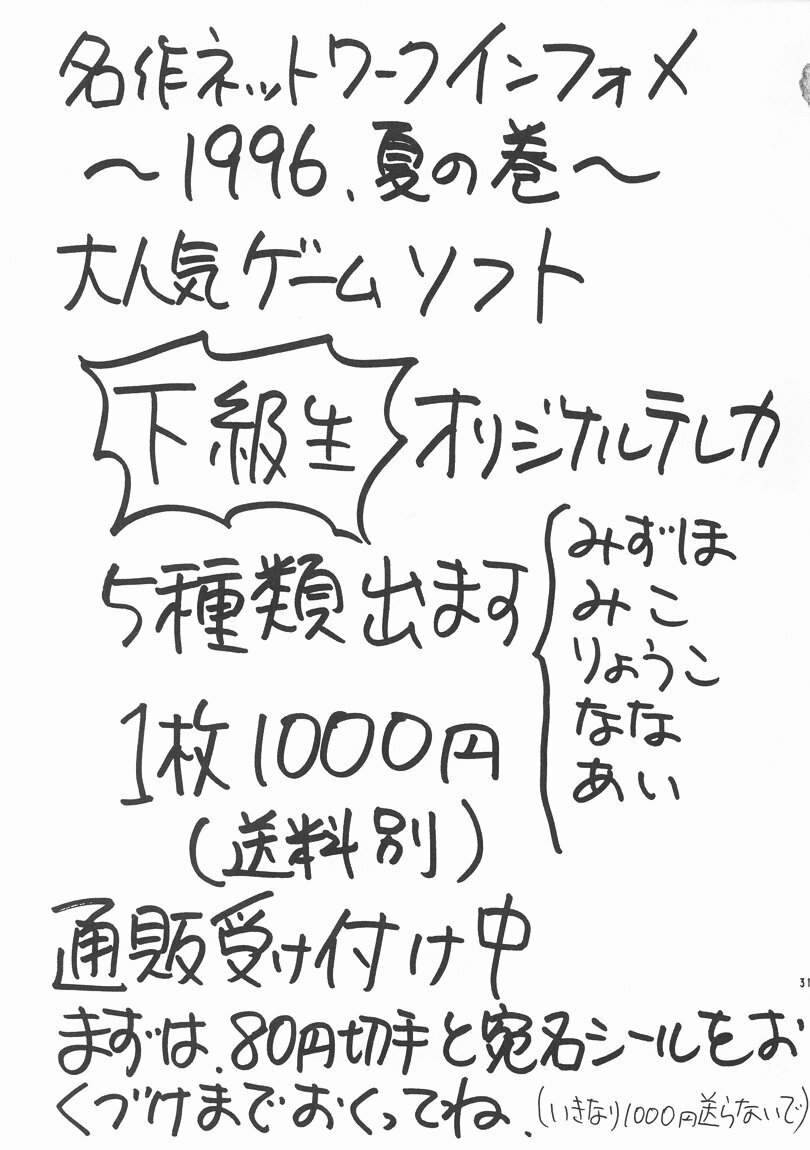 名作ネットワークインフォメ
～1996、夏の巻～
大人気ゲームソフト
下級生 オリジナルテレカ
5種類出ます
みずほ
みこ
りょうこ
なな
あい
1枚1000円
(送料別)
通販受け付け中
まずは、80円切手と宛名シールをお
くづけまでおくってね、(いきなり1000円送らないで)
31